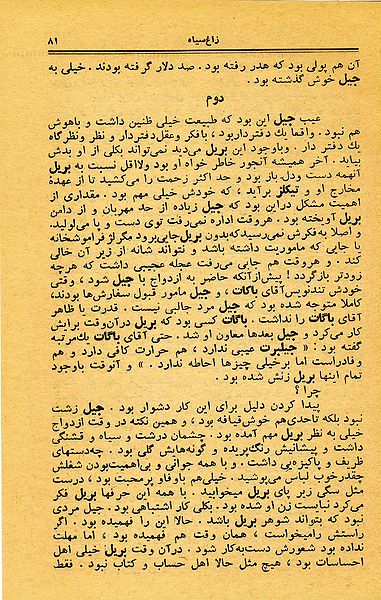 زاغ‌سیاه ۸۱
آن هم پولی بود که هدر رفته بود . صد دلار گرفته بودند . خیلی به
جیل خوش گذشته بود .
دوم
عیب جیل این بود که طبیعت خیلی ظنین داشت و باهوش
هم نبود . واقعاً یک دفتردار بود ، با فکر و عقل دفتردار و نظر و نظرگاه
یک دفتر دار . و باوجود این بریل می‌دید نمی‌تواند بکلی از او بدش
بیاید . آخر همیشه آنجور خاطر خواه او بود ولااقل نسبت به بریل
آنهمه دست ودل باز بود و حد اکثر زحمت را می‌کشید تا از عهدهٔ
مخارج او و تیکلز برآید ، که خودش خیلی مهم بود . مقداری از
اهمیت مشکل دراین بود که جیل زیاده از حد مهربان و از دامن
بریل آویخته بود . هروقت اداره نمی‌رفت توی دست و پا می‌ولید.
و اصلا به‌فکرش نمی‌رسیدکه‌بدون بریل‌جایی‌برود مگر‌لژ فراموشخانه
یا جایی که ماموریت داشته باشد و نتواند شانه از زیر آن خالی
کند . و هروقت هم جایی می‌رفت عجله عجیبی داشت که هرچه
زودتر بازگردد ! پیش‌از‌آنکه حاضر به ازدواج با جیل شود ، وقتی
خودش تندنویس‌آقای باگات ، و جیل مامور قبول سفارش‌ها بودند،
کاملا متوجه شده بود که جیل مرد جالبی نیست . قدرت یا ظاهر
باگات را نداشت . باگات کسی بود که بریل درآن‌وقت برایش
کار می‌کرد و جیل بعدها معاون او شد . حتی آقای باگات یک‌مرتبه
گفته بود : « جیلبرت عیبی ندارد ، هم حرارت کافی دارد و هم
وفادراست اما برخیلی چیزها احاطه ندارد . » و آنوقت باوجود
تمام اینها بریل زنش شده بود .
چرا ؟
پیدا کردن دلیل برای این کار دشوار بود . جیل زشت
نبود بلکه تاحدی‌هم خوش‌قیافه بود ، و همین نکته در وقت ازدواج
خیلی به نظر بریل مهم آمده بود . چشمان درشت و سیاه و قشنگی
داشت و پیشانیش رنگ‌پریده و گونه‌هایش گلی بود . چه‌دستهای
ظریف و پاکیزه‌یی داشت . و با همه جوانی و بی‌اهمیت‌بودن شغلش
چقدرخوب لباس می‌پوشید . خیلی‌هم باوفا‌و پرمحبت بود ، درست
مثل سگی زیر پای بریل میخوابید . با همه این حرفها بریل فکر
می‌کرد نبایست زن او شده بود . بکلی کار اشتباهی بود . جیل مردی
نبود که بتواند شوهر بریل باشد . حالا این را فهمیده بود . اگر
راستش رامیخواست ، همان وقت هم فهمیده بود ، اما مهلت
نداده بود شعورش دست‌به‌کار شود . درآن وقت بریل خیلی اهل
احساسات بود ، هیچ مثل حالا اهل حساب و کتاب نبود . فقط